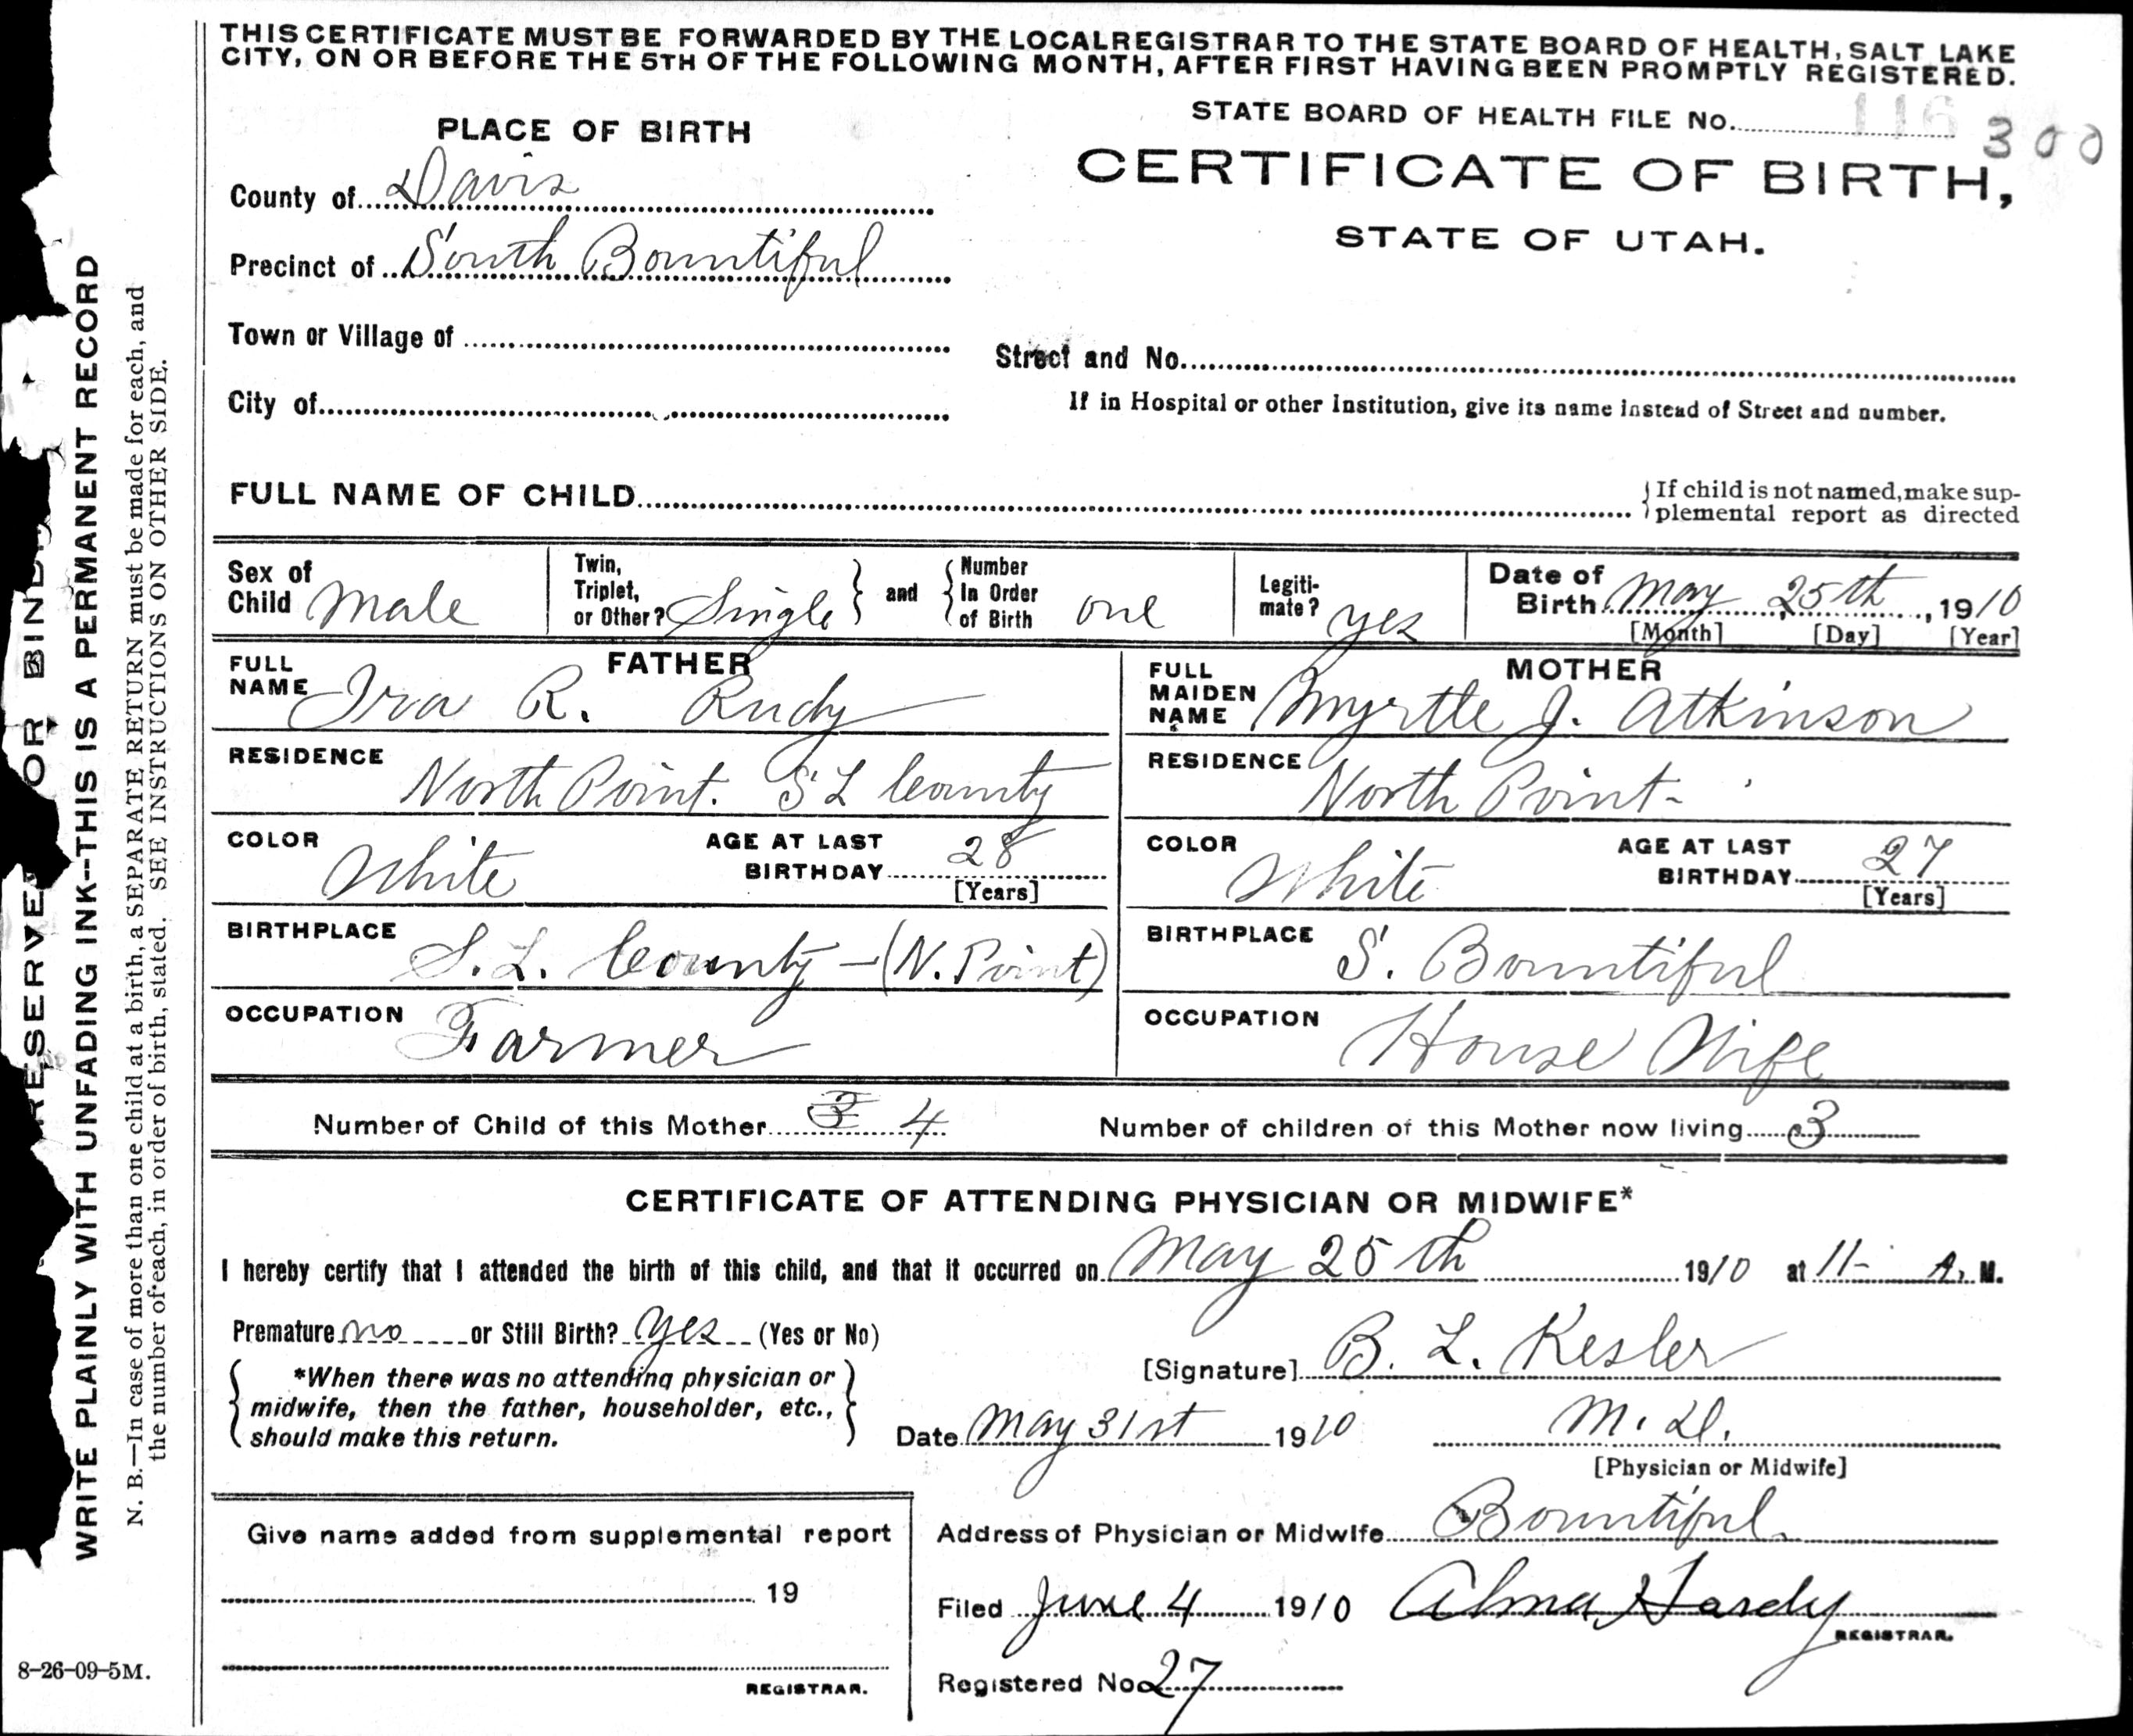 THIS CERTIFICATE MUST BE FORWARDED BY THE LOCAL REGISTRAR TO THE STATE BOARD OF HEALTH, SALT LAKE
CITY, ON OR BEFORE THE 5TH OF THE FOLLOWING MONTH, AFTER FIRST HAVING BEEN PROMPTLY REGISTERED.
STATE BOARD OF HEALTH FILE No. 116 300
PLACE OF BIRTH
CERTIFICATE OF BIRTH,
STATE OF UTAH.
County of Davis
Precinct of South Bountiful
Town or Village of
Street and No.
City of
If in Hospital or other Institution, give its name instead of Street and number.
FULL NAME OF CHILD
{If child is not named, make sup-
plemental report as directed
Sex of Child Male
Twin, Triplet, or Other? Single } and { Number In Order of Birth one
Legiti-mate? yes
Date of Birth May 25th, 1910
[Month] [Day] [Year]
FATHER
FULL NAME Ira R. Rudy
RESIDENCE North Point. S L County
COLOR White
AGE AT LAST BIRTHDAY 28
[Years]
BIRTHPLACE S. L. County - (N. Point)
OCCUPATION Farmer
MOTHER
FULL MAIDEN NAME Myrtle J. Atkinson
RESIDENCE North Point-
COLOR White
AGE AT LAST BIRTHDAY 27
[Years]
BIRTHPLACE S. Bountiful
OCCUPATION House Wife
Number of Child of this Mother 3 4
Number of children of this Mother now living 3
CERTIFICATE OF ATTENDING PHYSICIAN OR MIDWIFE*
I hereby certify that I attended the birth of this child, and that it occurred on May 25th 1910 at 11- A. M.
Premature no or Still Birth? yes (Yes or No)
[Signature] B. L. Kesler
{ *When there was no attending physician or
midwife, then the father, householder, etc.,
should make this return. }
Date May 31st 1910
M. D.
[Physician or Midwife]
Give name added from supplemental report
19
REGISTRAR.
Address of Physician or Midwife Bountiful.
Filed June 4 1910 Alma Hardy
REGISTRAR.
Registered No 27
8-26-09-5M.
RESERVED FOR BINDI
WRITE PLAINLY WITH UNFADING INK--THIS IS A PERMANENT RECORD
N. B.—In case of more than one child at a birth, a SEPARATE RETURN must be made for each, and
the number of each, in order of birth, stated. SEE INSTRUCTIONS ON OTHER SIDE.